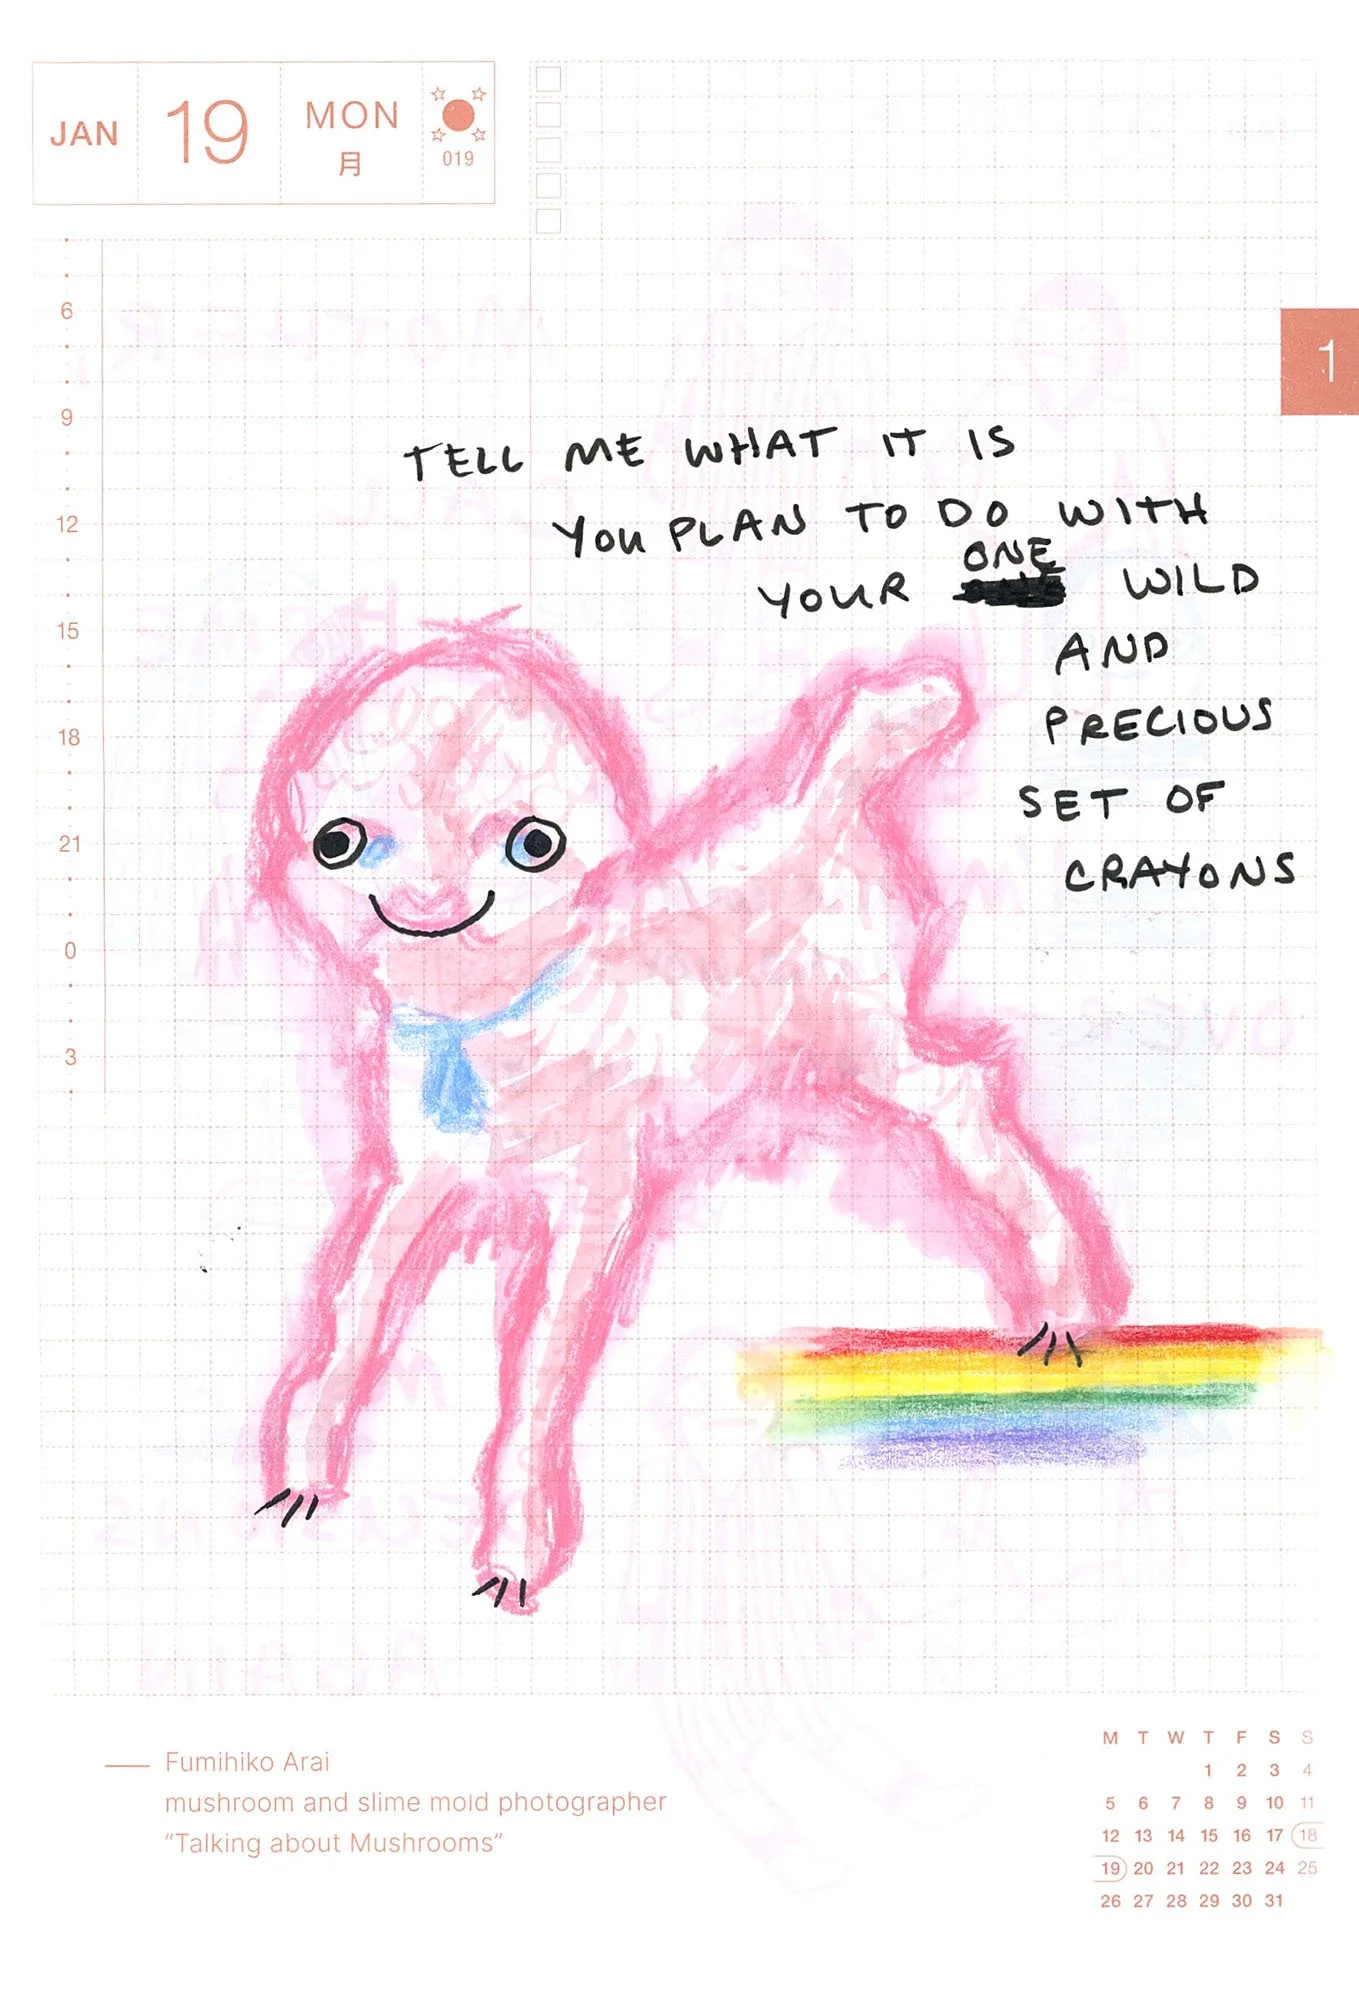 JAN 19 MON
月
019
1
6
9
12
15
18
21
0
3
TELL ME WHAT IT IS
YOU PLAN TO DO WITH
ONE
YOUR WILD
AND
PRECIOUS
SET OF
CRAYONS
Fumihiko Arai
mushroom and slime mold photographer
“Talking about Mushrooms”
M T W T F S S
1 2 3 4
5 6 7 8 9 10 11
12 13 14 15 16 17 18
19 20 21 22 23 24 25
26 27 28 29 30 31